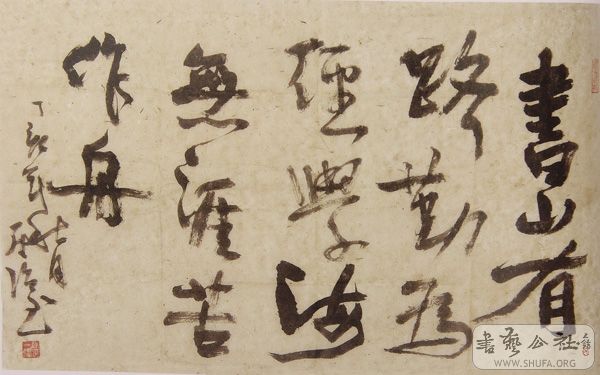 書山有
路勤為
徑學海
無涯苦
作舟
丁亥年
書藝公社
WWW.SHUFA.ORG